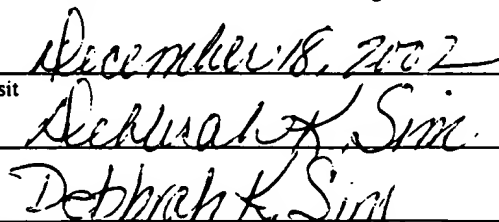 December 18, 2002
sit
Deborah K. Sim
Debbrah K. Sim